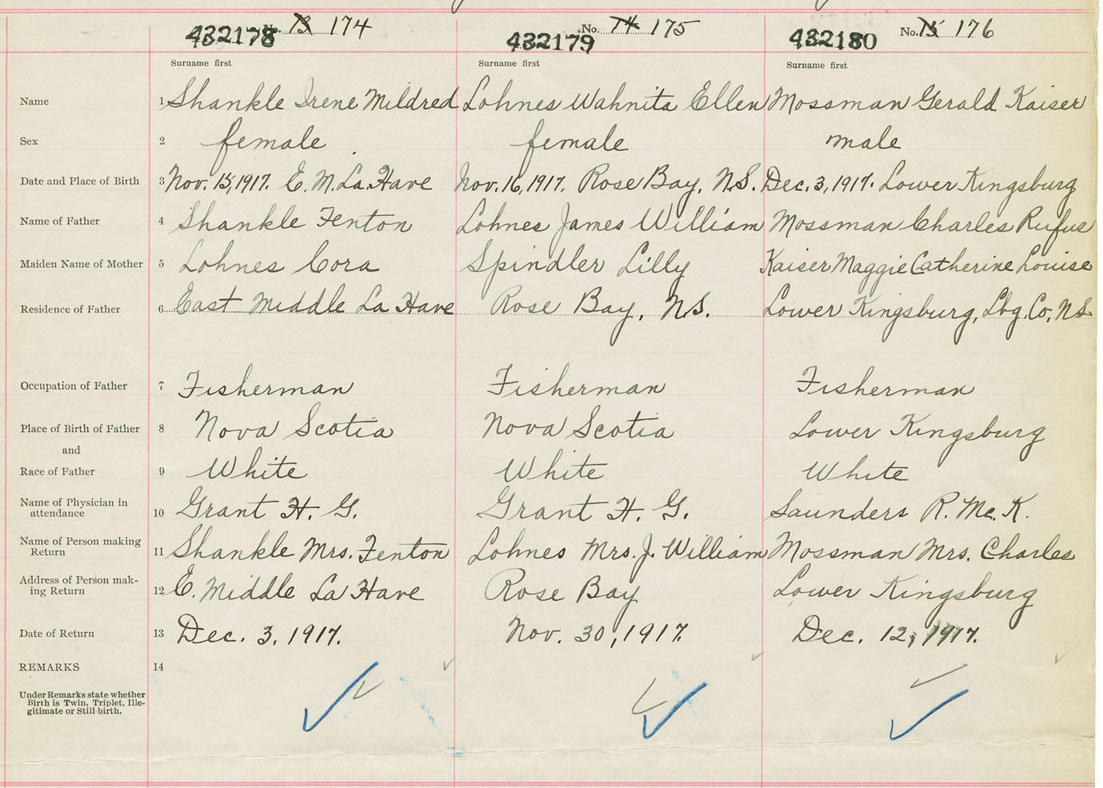 432178 No. 13 174 432179 No. 14 175 432180 No. 15 176
Surname first Surname first Surname first
Name 1 Shankle Irene Mildred Lohnes Wahnita Ellen Mossman Gerald Kaiser
Sex 2 female female male
Date and Place of Birth 3 Nov. 15, 1917. E. M. La Have Nov. 16, 1917. Rose Bay, N.S. Dec. 3, 1917. Lower Kingsburg
Name of Father 4 Shankle Fenton Lohnes James William Mossman Charles Rufus
Maiden Name of Mother 5 Lohnes Cora Spindler Lilly Kaiser Maggie Catherine Louise
Residence of Father 6 East Middle La Have Rose Bay, N.S. Lower Kingsburg, Lbg. Co, N.S
Occupation of Father 7 Fisherman Fisherman Fisherman
Place of Birth of Father 8 Nova Scotia Nova Scotia Lower Kingsburg
and
Race of Father 9 White White White
Name of Physician in
attendance 10 Grant H. G. Grant H. G. Saunders R. Mc. K.
Name of Person making
Return 11 Shankle Mrs. Fenton Lohnes Mrs. J. William Mossman Mrs. Charles
Address of Person mak-
ing Return 12 E. Middle La Have Rose Bay Lower Kingsburg
Date of Return 13 Dec. 3, 1917. Nov. 30, 1917. Dec. 12, 1917.
REMARKS 14
Under Remarks state whether
Birth is Twin, Triplet, Ille-
gitimate or Still-birth.